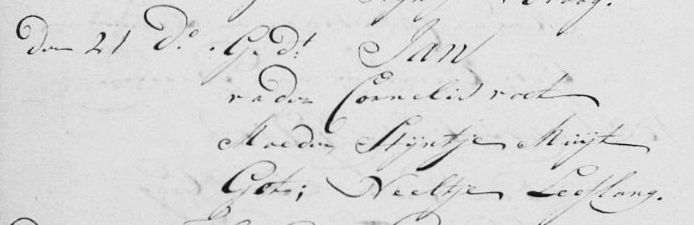 Den 21 Do. Gedt Jan
vader Cornelis roet
Moeder Stijntje Muijt
Get; Neeltje Leeflang.